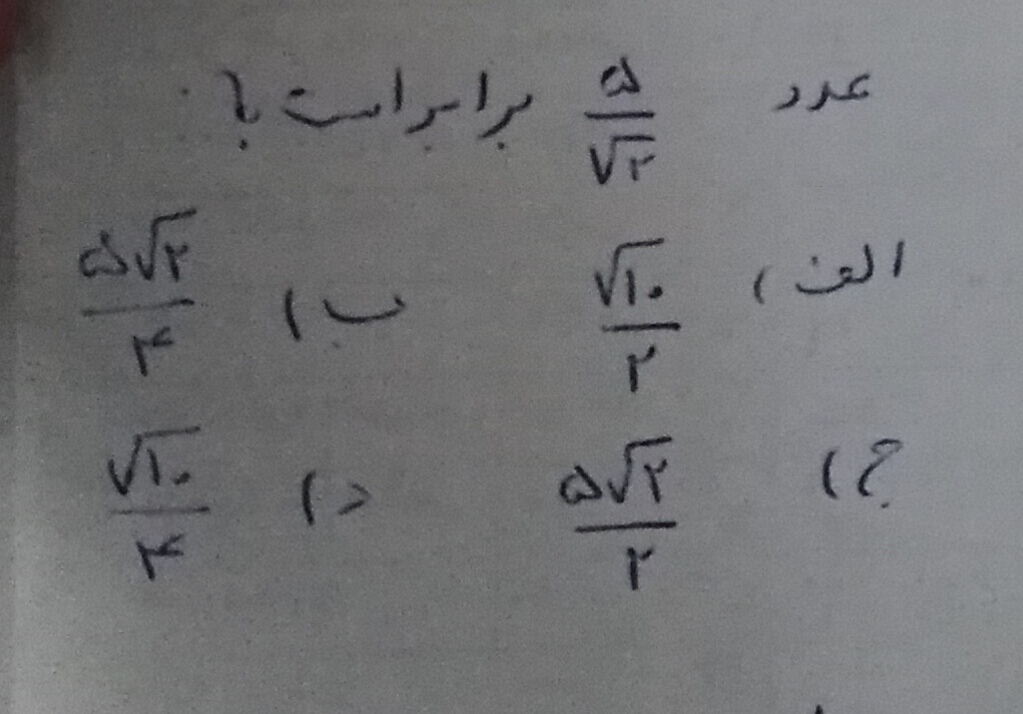 عدد ۵/√۲ برابر است با:
الف) √۱۰/۲ ب) ۵√۲/۴
ج) ۵√۲/۲ د) √۱۰/۴